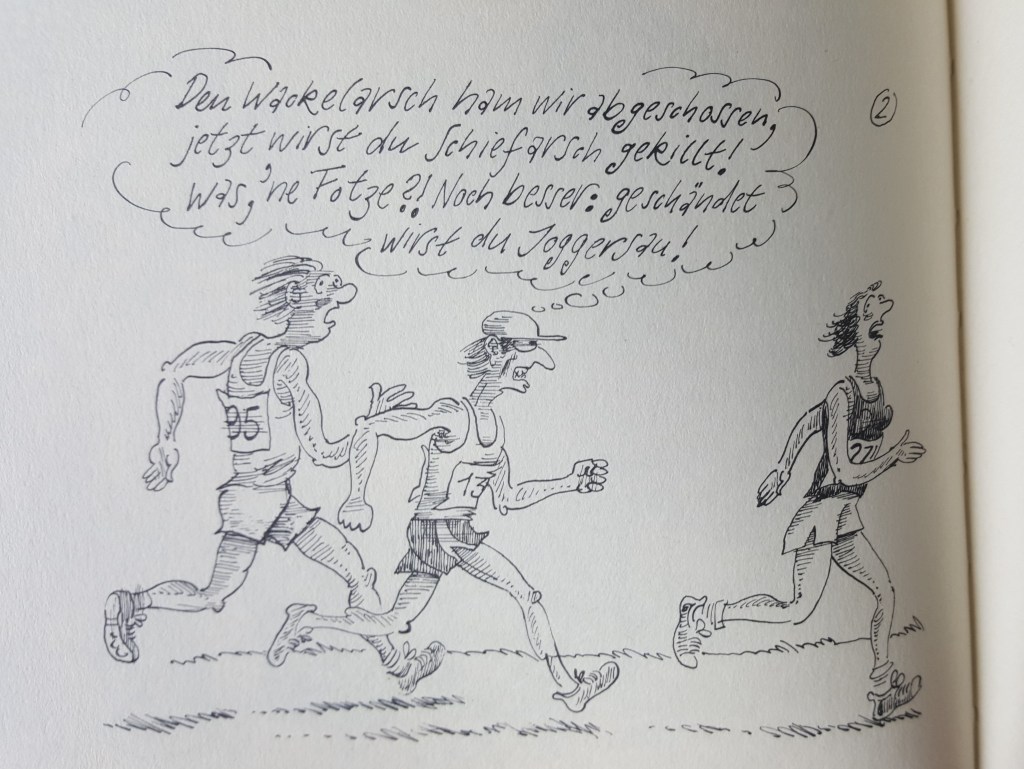 Den Wackelarsch ham wir abgeschossen,
jetzt wirst du Schiefarsch gekillt!
Was, 'ne Fotze?! Noch besser: geschändet
wirst du Joggersau!
2
95
13
27